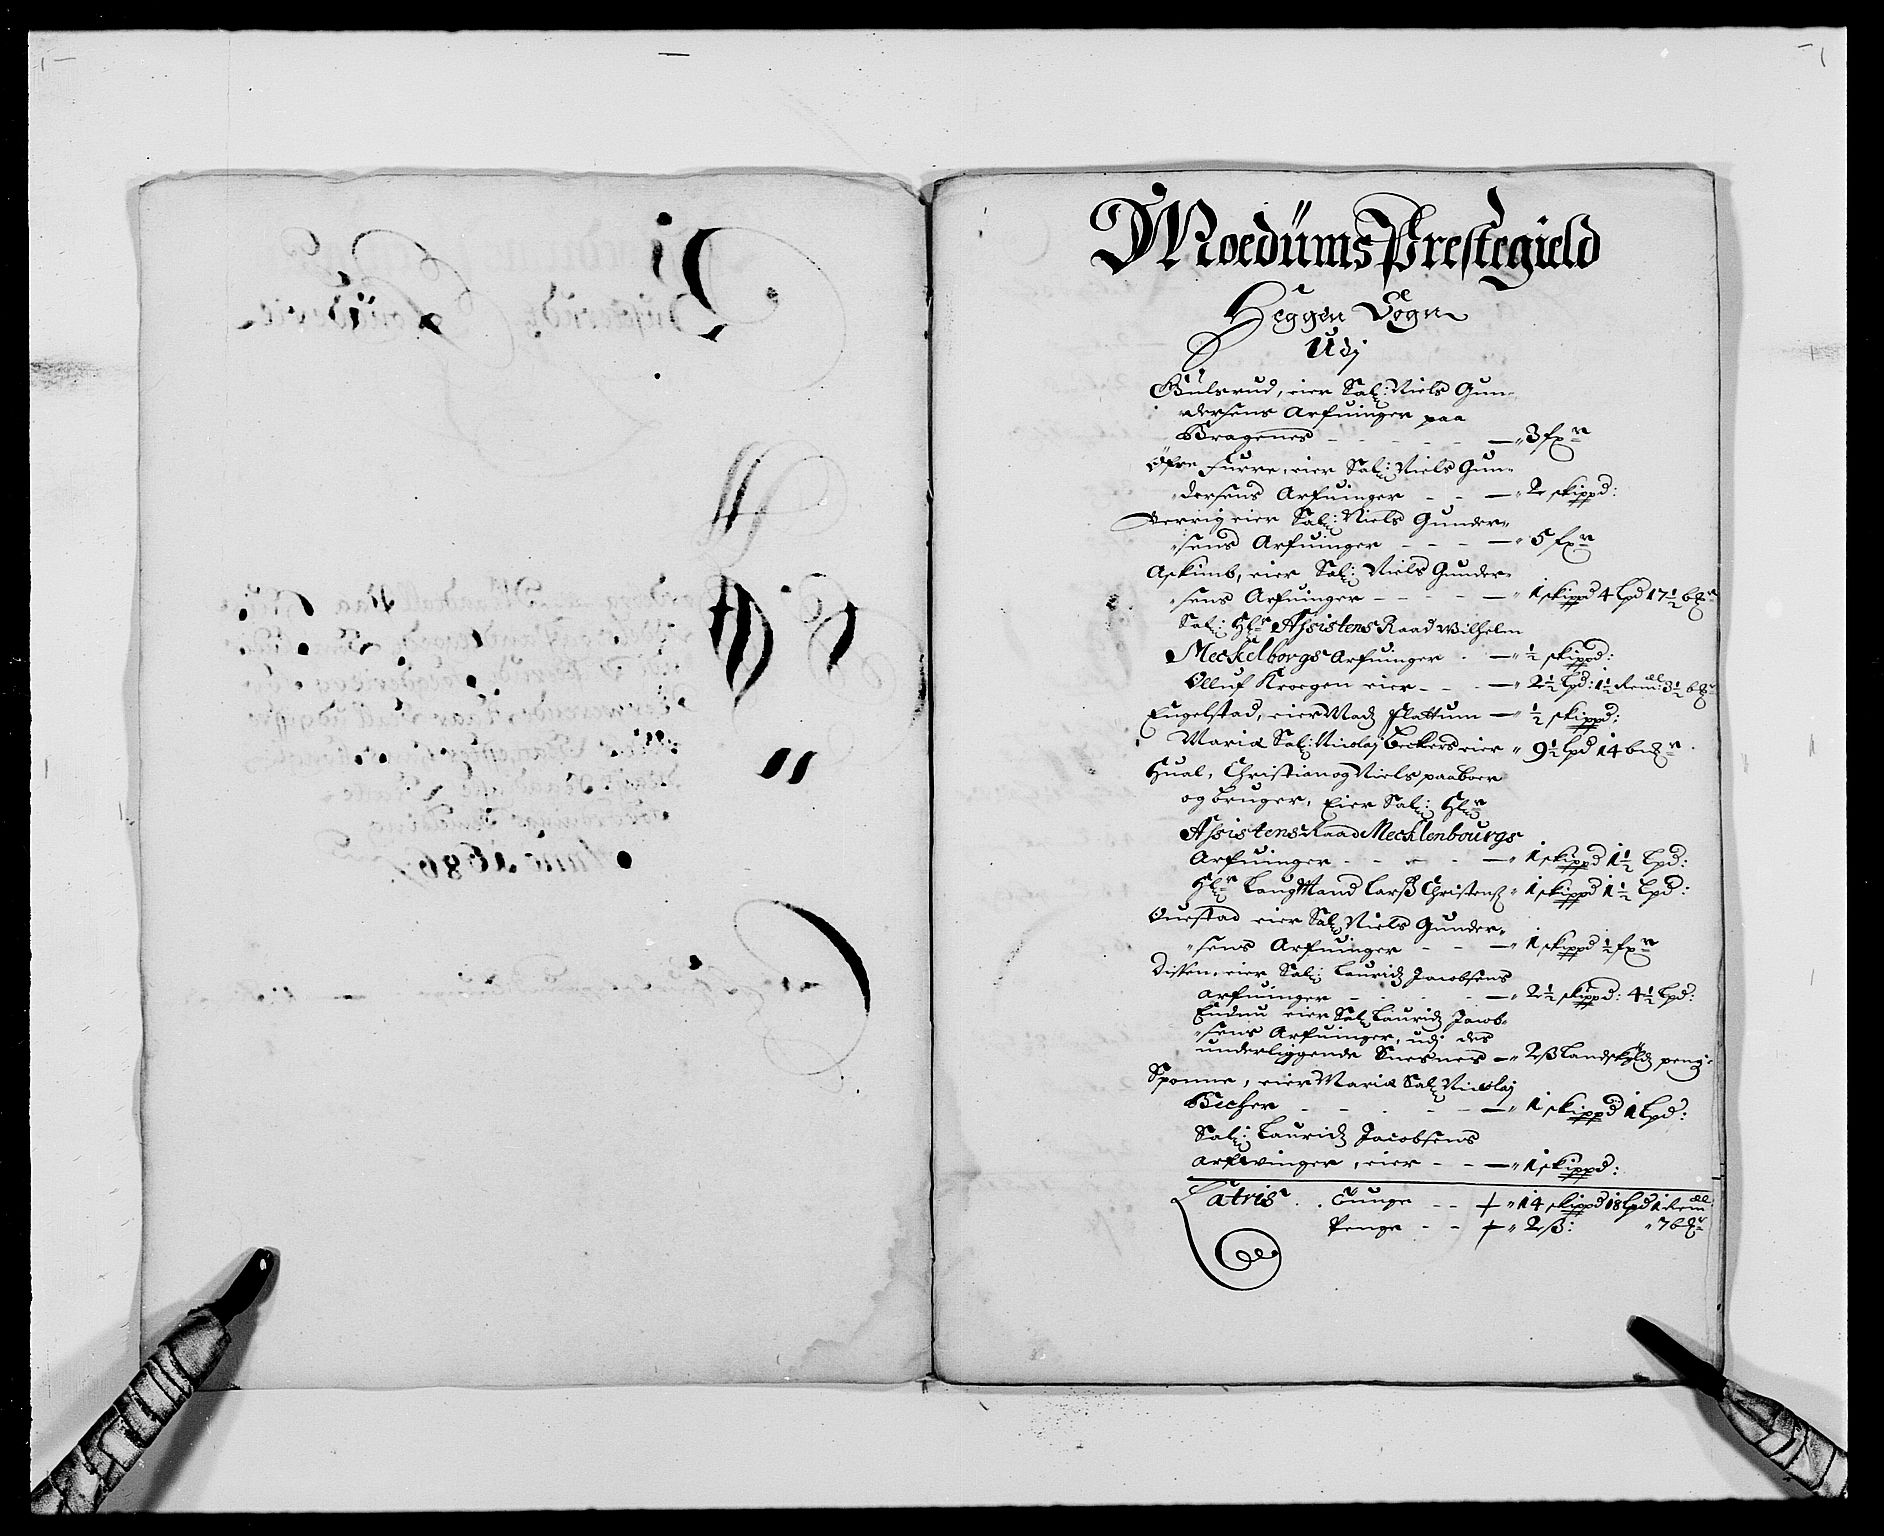 Moedums Prestegield
Heggen Sogn
Udj
Bulsrud, eier Sal: Niels Gun-
dersens Arfuinger paa
Bragenes - - - - - — " 3 fxr
Øfre Furre, eier Sal: Niels Gun-
"dersens Arfuinger - - — " 2 skippd:
Verrig eier Sal: Niels Gunder-
"sens Arfuinger - - - — " 5 fxr
Askimb, eier Sal: Niels Gunder-
"sens Arfuinger - - - - — " 1 skippd 4 lpd 17½ bℳr
Sal: Hr Assistens Raad Wilhelm
Meckelborgs Arfuinger - — " ½ skippd:
Olluf Kroegen eier - - - — " 2½ lpd: 1½ Rem: 3½ bℳr
Engelstad, eier Madz Flattum — " ½ skippd:
Maria Sal: Nicolaj Beckers eier " 9½ lpd 14 bℳr
Hual, Christian og Niels paaboer
og bruger, Eier Sal: Hr
Assistens Raad Mecklenbourgs
Arfuinger - - - - — " 1 skippd 1½ lpd:
Hr Laugmand Larß Christenß " 1 skippd 1½ lpd:
Ouestad eier Sal: Niels Gunder-
"sens Arfuinger - - — " 1 skippd ½ fxr
Disen, eier Sal: Lauridz Jacobsens
Arfuinger - - - - — " 2½ skippd: 4½ lpd:
Endnu eier Sal: Lauridz Jacob-
"sens Arfuinger, udj des
underliggende Snesnes — " 2 ß Landskyldz peng:
Sponne, eier Maria Sal: Nicolaj
Becher - - - - - — " 1 skippd 1 lpd:
Sal: Lauridz Jacobsens
Arfwinger, eier - - — " 1 skippd:
Latris . . Tunge - - + " 14 skippd 18 lpd 1 Rem
Penge - - + " 2 ß: " 7 bℳr